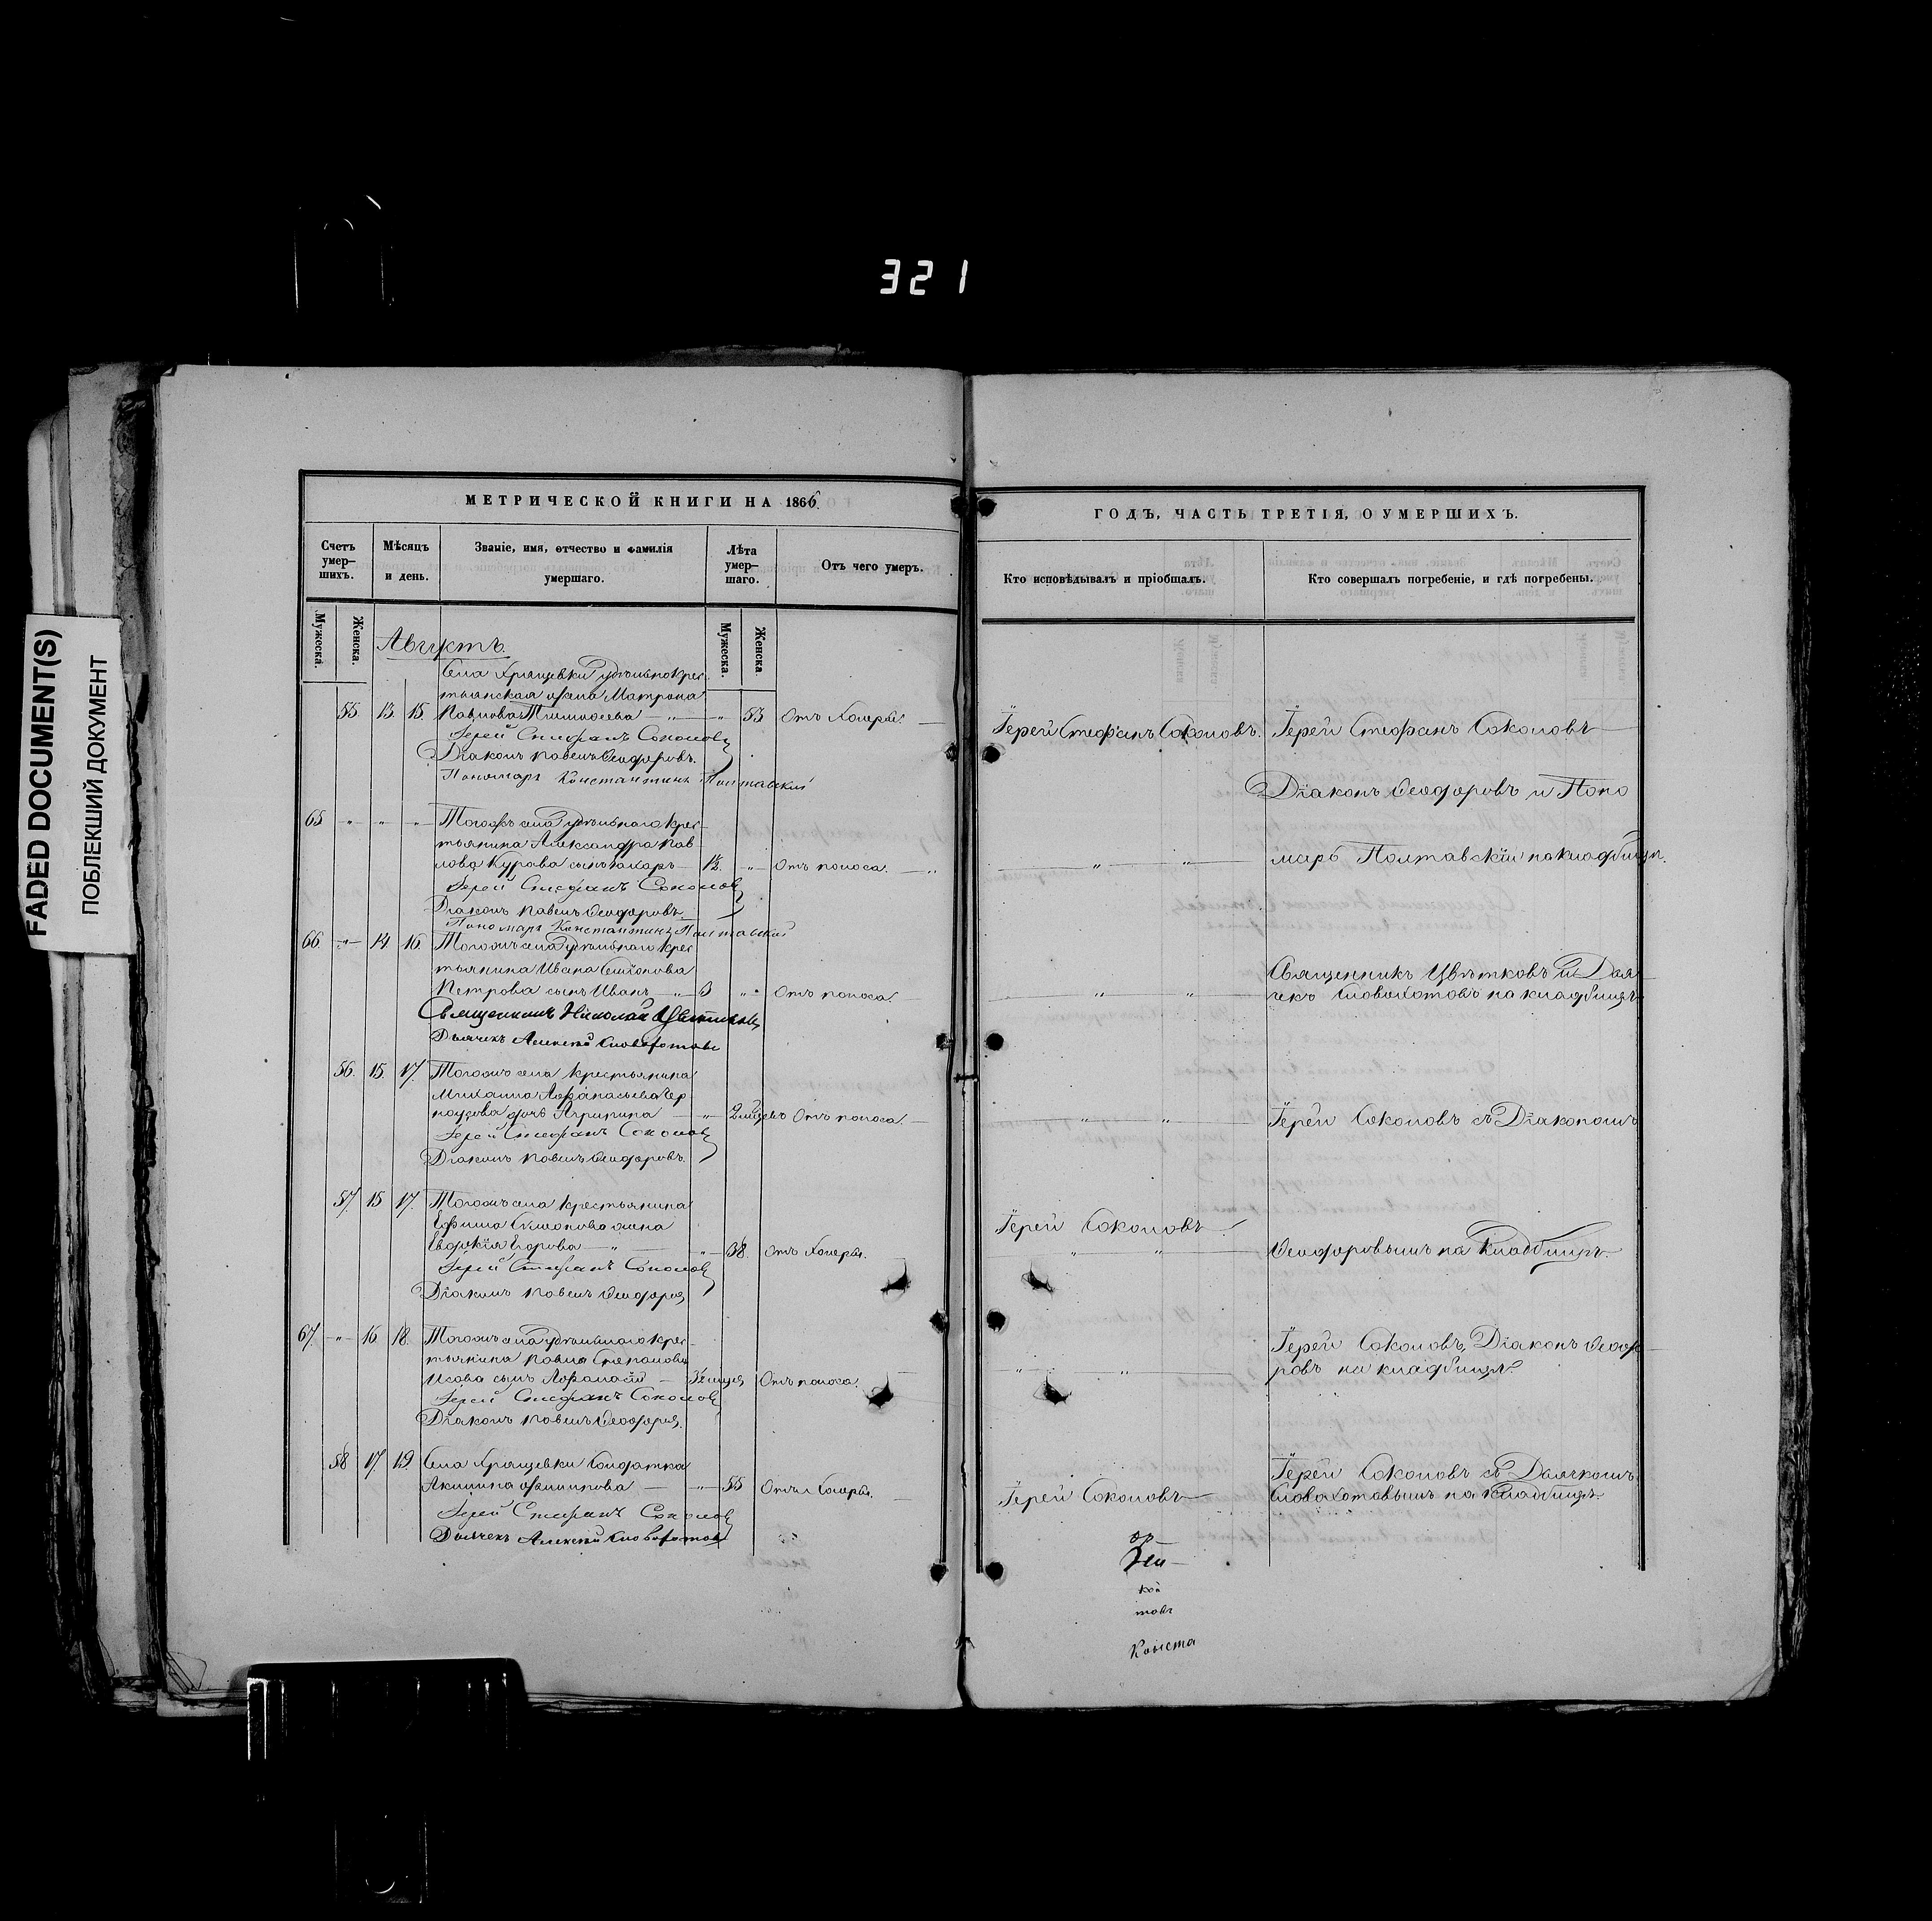 321
FADED DOCUMENT(S)
ПОБЛЕКШИЙ ДОКУМЕНТ
МЕТРИЧЕСКОЙ КНИГИ НА 1866
Счетъ умер-шихъ.
Мѣсяцъ и день.
Званіе, имя, отчество и фамилія умершаго.
Лѣта умер-шаго.
Отъ чего умеръ.
Мужеска.
Женска.
Мужеска.
Женска
Августъ.
Села Хрящевки Удѣльнокрес-
тьянская жена Матрона
55. 13. 15. Павлова Тимофеева " 53 Отъ Холеры.
Іерей Стефанъ Соколовъ
Діаконъ Павелъ Ѳеодоровъ.
Пономарь Константинъ Полтавскій
65 " " " Тогожъ села Удѣльнаго крес-
тьянина Александра Пав
лова Курова сынъ Захаръ 1½. " Отъ поноса.
Іерей Стефанъ Соколовъ
Діаконъ Павелъ Ѳеодоровъ.
Пономарь Константинъ Полтавскій
66. " 14. 16 Тогожъ села Удѣльнаго крес
тьянина Ивана Симонова
Петрова сынъ Иванъ " 3 " Отъ поноса.
Священникъ Николай Цвѣтковъ
Дьячекъ Алексѣй Словохотовъ
56. 15. 17. Тогожъ села Крестьянина
Михаила Афанасьева Чер
ноусова дочь Агрипина " Отъ поноса.
Іерей Стефанъ Соколовъ
Діаконъ Павелъ Ѳеодоровъ.
57. 15 17. Тогожъ села Крестьянина
Ефима Симонова жена
Евдокія Егорова " " 38. Отъ Холеры.
Іерей Стефанъ Соколовъ
Діаконъ Павелъ Ѳеодоровъ
67. " 16 18. Тогожъ села удѣльнаго крес-
тьянина Павла Степанова
Исова сынъ Афанасій Отъ поноса.
Іерей Стефанъ Соколовъ
Діаконъ Павелъ Ѳеодоровъ.
58 17. 19. Села Хрящевки Солдатка
Акилина Филипова " 55 Отъ Холеры.
Іерей Стефанъ Соколовъ
Дьячекъ Алексѣй Словохотовъ
ГОДЪ, ЧАСТЬ ТРЕТІЯ, О УМЕРШИХЪ.
Кто исповѣдывалъ и пріобщалъ.
Кто совершалъ погребеніе, и гдѣ погребены.
Іерей Стефанъ Соколовъ. Іерей Стефанъ Соколовъ
Діаконъ Ѳеодоровъ и Поно
" " марь Полтавскій на кладбищѣ.
Священникъ Цвѣтковъ и Дья
" " чекъ Словохотовъ на кладбищѣ
" " Іерей Соколовъ съ Діакономъ
Іерей Соколовъ
" " Ѳеодоровымъ на Кладбищѣ.
Іерей Соколовъ, Діаконъ Ѳеодо
" " ровъ на кладбищѣ.
Іерей Соколовъ съ Дьячкомъ
Іерей Соколовъ Словохотовымъ на Кладбищѣ.
товъ
Конста